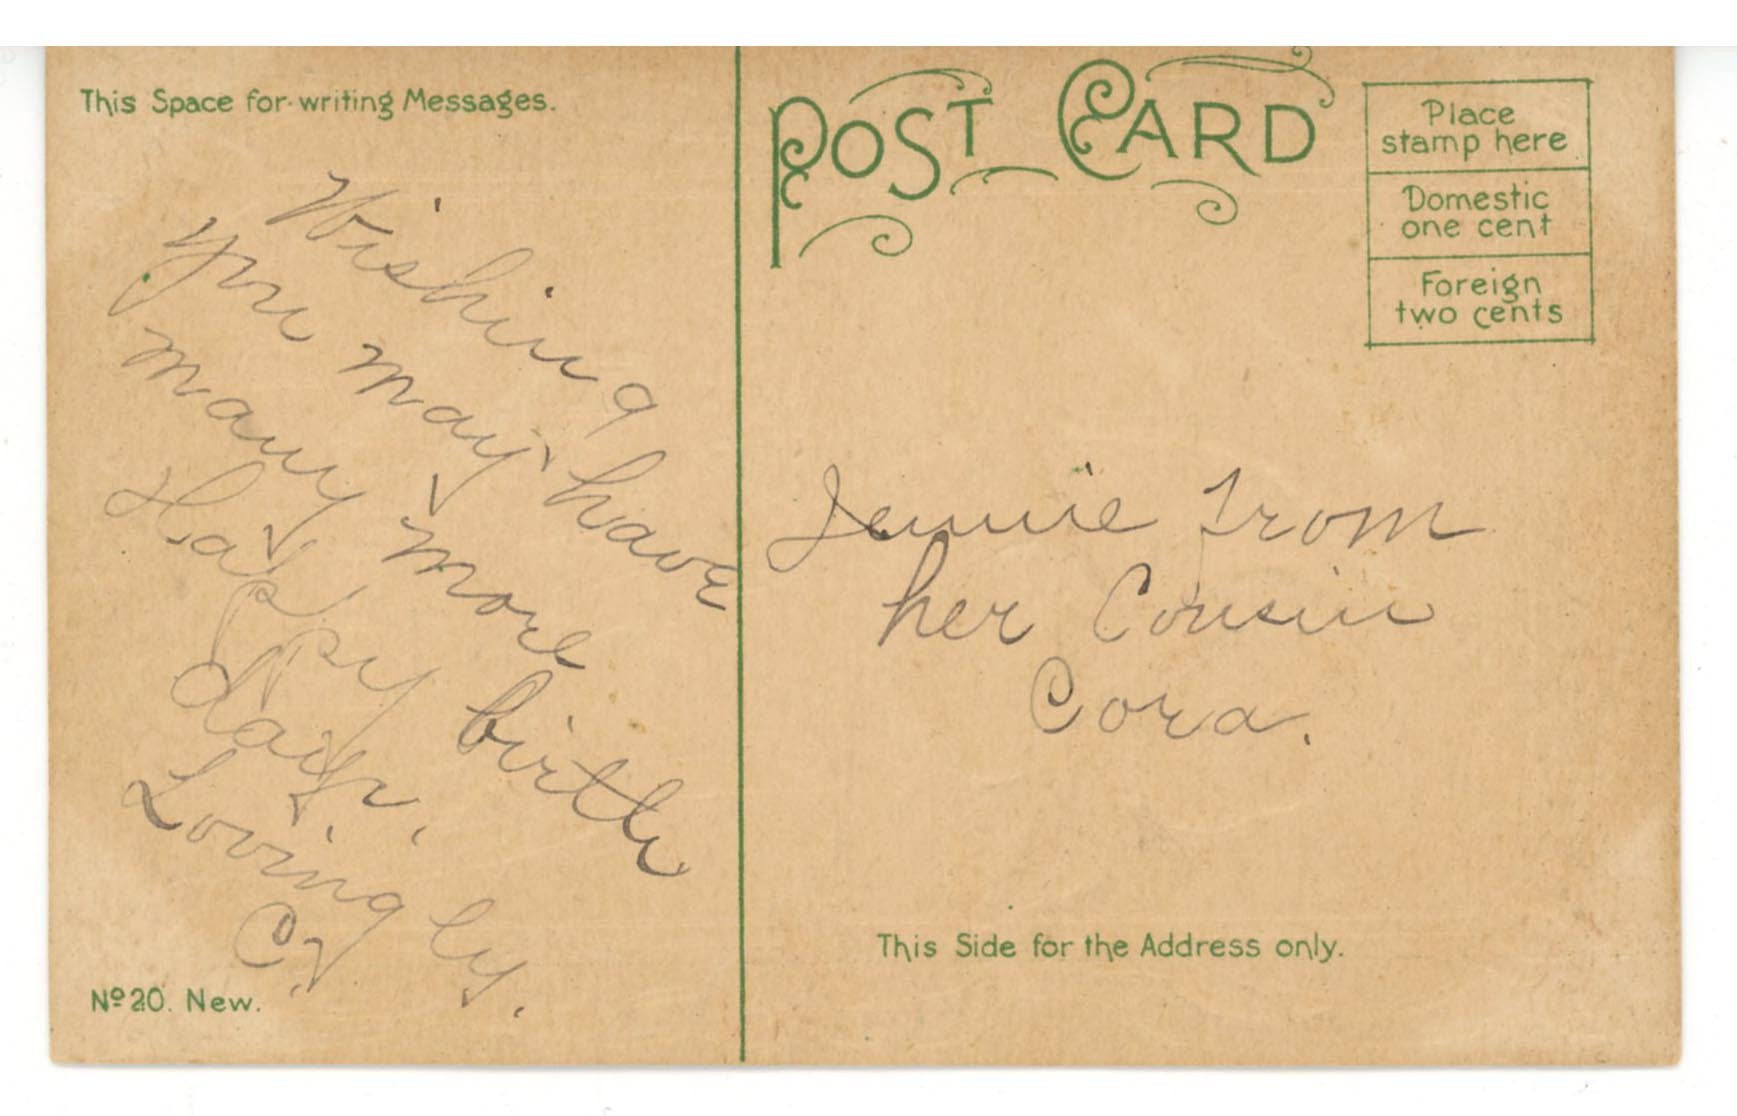 This Space for writing Messages.
Wishing
you may have
many more
Happy birth
days.
Lovingly.
C.
No 20. New.
POST CARD
Place
stamp here
Domestic
one cent
Foreign
two cents
Jennie From
her Cousin
Cora.
This Side for the Address only.